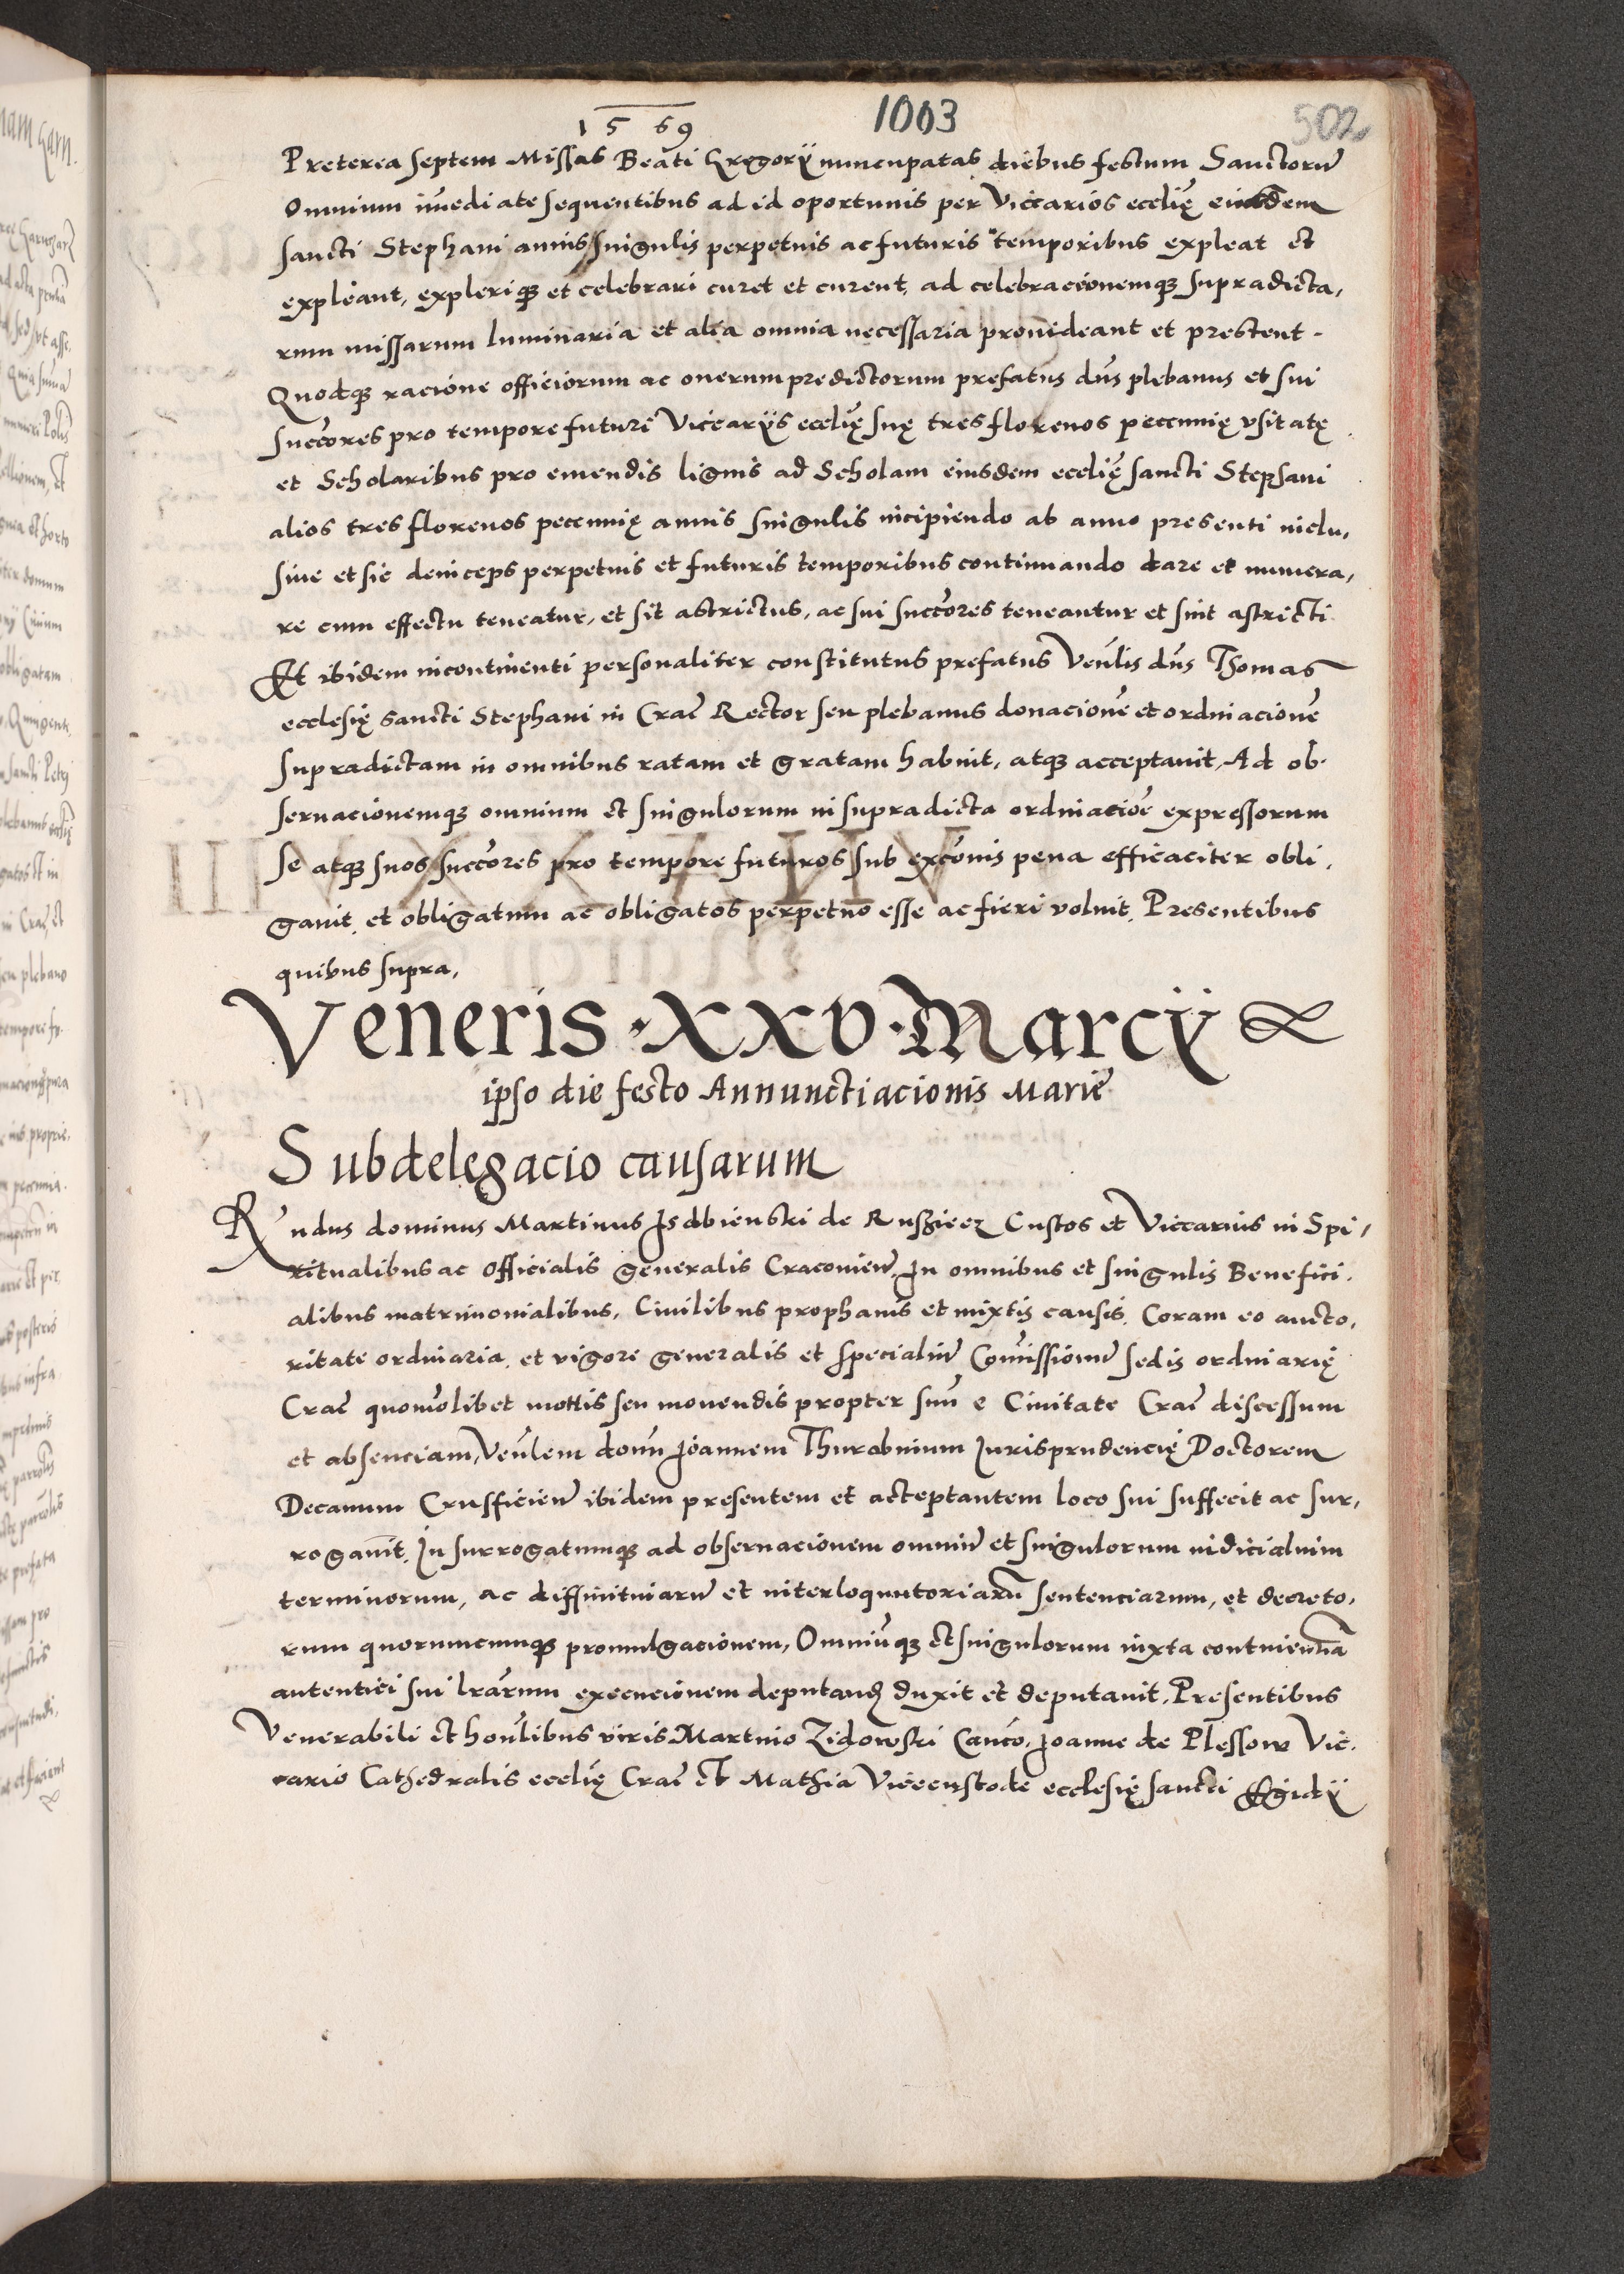 1569
1003
502
Preterea septem Missas Beati Gregorÿ nuncupatas diebus festum Sanctorū
Omnium īmediate sequentibus ad id oportunis per Viccarios ecclię eiusdem
sancti Stephani annis singulis perpetuis ac futuris temporibus expleat et
expleant, explerique et celebrari curet et curent, ad celebraccionemque supradicta,
rum missarum luminaria et alia omnia necessaria prouideant et prestent.
Quodque racione officiorum ac onerum predictorum prefatus dn̄s plebanus et sui
succc̄ores pro tempore futuri Viccarÿs ecclię suę tres florenos peccunię vsitatę
et Scholaribus pro emendis lignis ad Scholam eiusdem ecclię sancti Stephani
alios tres florenos peccunię annis singulis incipiendo ab anno presenti inclu,
siue et sic deinceps perpetuis et futuris temporibus continuando dare et numera,
re cum effectu teneatur, et sit astrictus, ac sui succc̄ores teneantur et sint astricti
Et ibidem incontinenti personaliter constitutus prefatus Venl̄is dn̄s Thomas
ecclesię sancti Stephani in Crac̄ Rector seu plebanus donacionē et ordinacionē
supradictam in omnibus ratam et gratam habuit, atque acceptauit, Ad ob.
seruacionemque omnium et singulorum in supradicta ordinaciōe expressorum
se atque suos succc̄ores pro tempore futuros sub excōnis pena efficaciter obli,
gauit, et obligatum ac obligatos perpetuo esse ac fieri voluit. Presentibus
quibus supra,
Veneris · xxv · Marcÿ
ipso die festo Annunctiacionis Marie
Subdelegacio causarum
Rn̄dus dominus Martinus Isdbienski de Rusziecz Custos et Viccarius in Spi,
ritualibus ac Officialis generalis Cracouien̄. In omnibus et singulis Benefici.
alibus matrimonialibus, Ciuilibus prophanis et mixtis causis. Coram eo aucto,
ritate ordinaria, et vigore generalis et specialiū Com̄issionū sedis ordinarię
Crac̄ quomōlibet mottis seu mouendis propter suū e Ciuitate Crac̄ discessum
et absenciam, Venl̄em donū Joannem Thurobinium Jurisprudencię Doctorem
Decanum Crusficien̄ ibidem presentem et acceptantem loco sui suffecit ac sur,
rogauit. In surrogatumque ad obseruacionem omniū et singulorum iudicialium
terminorum, ac diffinitiuarū et interloquutoriarū sentenciarum, et decreto,
rum quorumcumque promulgacionem, Omniūque et singulorum iuxta continentiā
autentici sui lrārum execucionem deputand̄ duxit et deputauit, Presentibus
Venerabili et honl̄ibus viris Martino Zidowski Canco. Joanne de Plessow Vic.
cario Cathedralis ecclię Crac̄ et Mathia Viccecustode ecclesię sancti Egidÿ